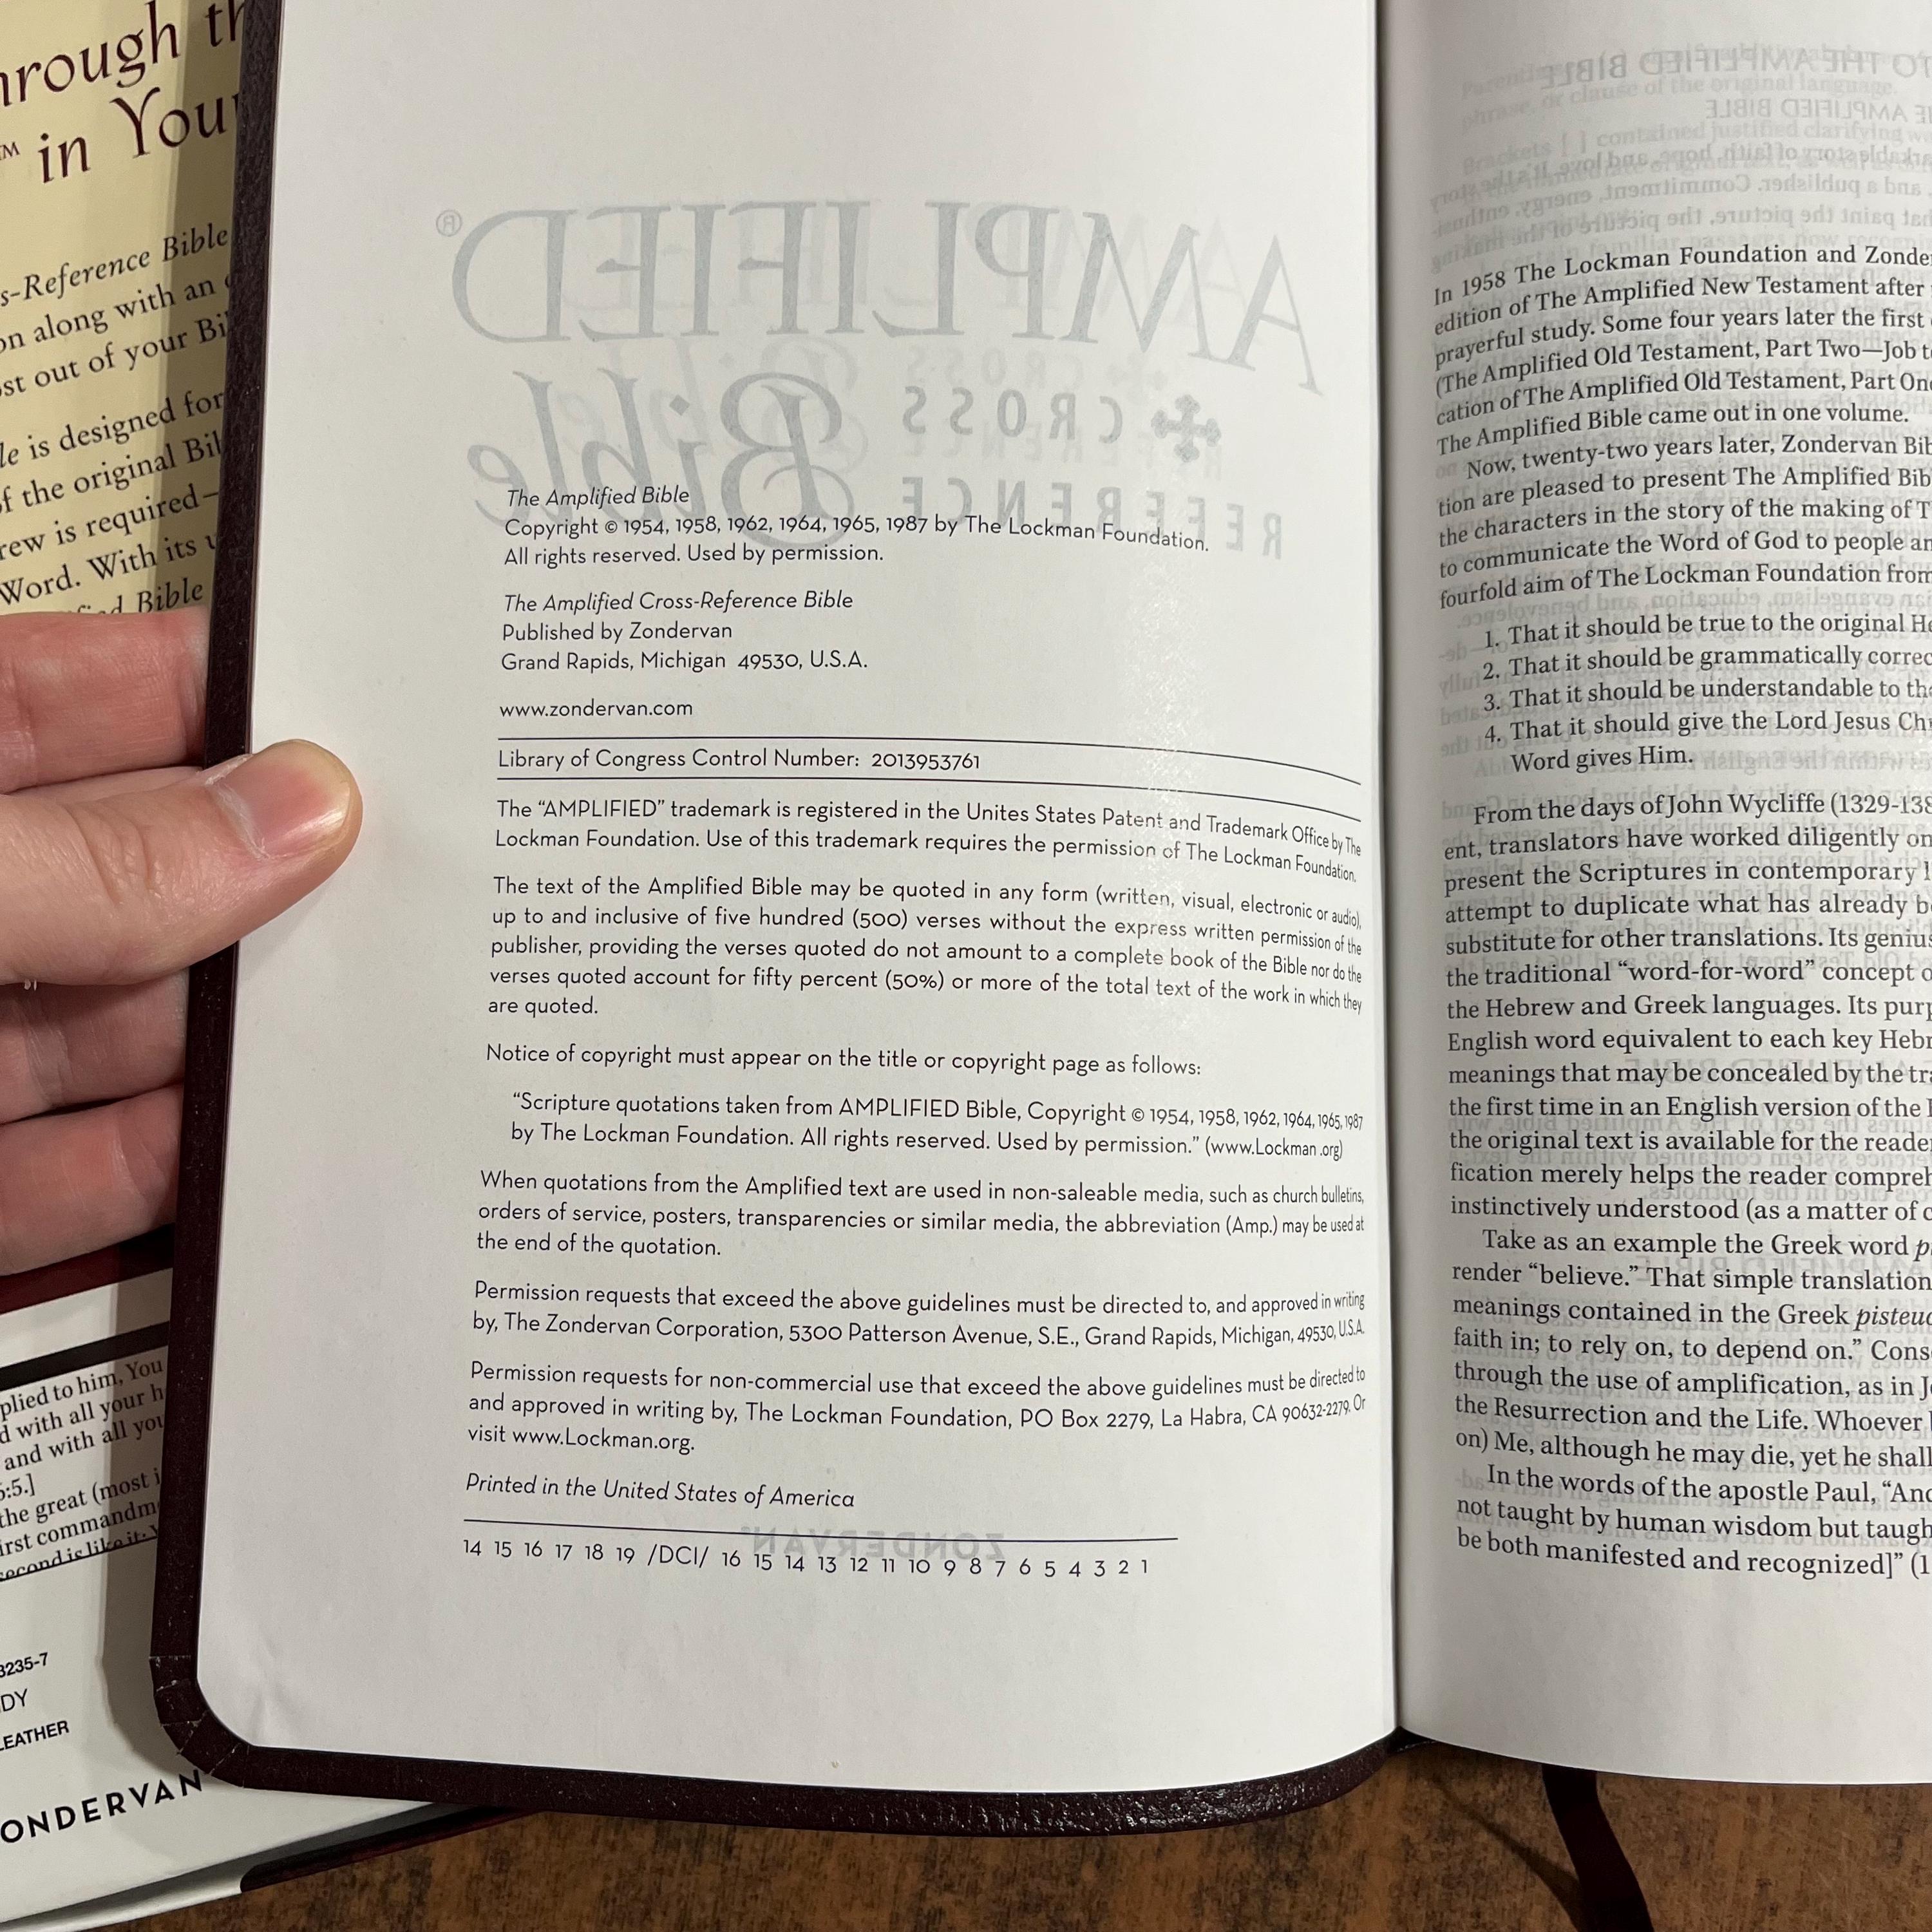 hrough th
™ in Your
s-Reference Bible
on along with an
st out of your Bi
le is designed for
f the original Bib
rew is required—
Word. With its
Bible
plied to him, You
d with all your h
and with all you
5:5.]
the great (most i
first commandm
second is like it:
3235-7
DY
LEATHER
ONDERVAN
AMPLIFIED®
CROSS
REFERENCE
Bible
The Amplified Bible
Copyright © 1954, 1958, 1962, 1964, 1965, 1987 by The Lockman Foundation.
All rights reserved. Used by permission.
The Amplified Cross-Reference Bible
Published by Zondervan
Grand Rapids, Michigan 49530, U.S.A.
www.zondervan.com
Library of Congress Control Number: 2013953761
The “AMPLIFIED” trademark is registered in the Unites States Patent and Trademark Office by The
Lockman Foundation. Use of this trademark requires the permission of The Lockman Foundation.
The text of the Amplified Bible may be quoted in any form (written, visual, electronic or audio),
up to and inclusive of five hundred (500) verses without the express written permission of the
publisher, providing the verses quoted do not amount to a complete book of the Bible nor do the
verses quoted account for fifty percent (50%) or more of the total text of the work in which they
are quoted.
Notice of copyright must appear on the title or copyright page as follows:
“Scripture quotations taken from AMPLIFIED Bible, Copyright © 1954, 1958, 1962, 1964, 1965, 1987
by The Lockman Foundation. All rights reserved. Used by permission.” (www.Lockman.org)
When quotations from the Amplified text are used in non-saleable media, such as church bulletins,
orders of service, posters, transparencies or similar media, the abbreviation (Amp.) may be used at
the end of the quotation.
Permission requests that exceed the above guidelines must be directed to, and approved in writing
by, The Zondervan Corporation, 5300 Patterson Avenue, S.E., Grand Rapids, Michigan, 49530, U.S.A.
Permission requests for non-commercial use that exceed the above guidelines must be directed to
and approved in writing by, The Lockman Foundation, PO Box 2279, La Habra, CA 90632-2279. Or
visit www.Lockman.org.
Printed in the United States of America
ZONDERVAN®
14 15 16 17 18 19 /DCI/ 16 15 14 13 12 11 10 9 8 7 6 5 4 3 2 1
TO THE AMPLIFIED BIBLE
E AMPLIFIED BIBLE
In 1958 The Lockman Foundation and Zonde
edition of The Amplified New Testament after
prayerful study. Some four years later the first
(The Amplified Old Testament, Part Two—Job t
cation of The Amplified Old Testament, Part On
The Amplified Bible came out in one volume.
Now, twenty-two years later, Zondervan Bib
tion are pleased to present The Amplified Bib
the characters in the story of the making of T
to communicate the Word of God to people an
fourfold aim of The Lockman Foundation from
1. That it should be true to the original He
2. That it should be grammatically correc
3. That it should be understandable to the
4. That it should give the Lord Jesus Chr
Word gives Him.
From the days of John Wycliffe (1329-138
ent, translators have worked diligently on
present the Scriptures in contemporary l
attempt to duplicate what has already b
substitute for other translations. Its genius
the traditional “word-for-word” concept o
the Hebrew and Greek languages. Its purp
English word equivalent to each key Hebr
meanings that may be concealed by the tra
the first time in an English version of the
the original text is available for the reade
fication merely helps the reader compreh
instinctively understood (as a matter of c
Take as an example the Greek word p
render “believe.” That simple translation
meanings contained in the Greek pisteuo
faith in; to rely on, to depend on.” Cons
through the use of amplification, as in J
the Resurrection and the Life. Whoever
on) Me, although he may die, yet he shall
In the words of the apostle Paul, “And
not taught by human wisdom but taugh
be both manifested and recognized]” (1